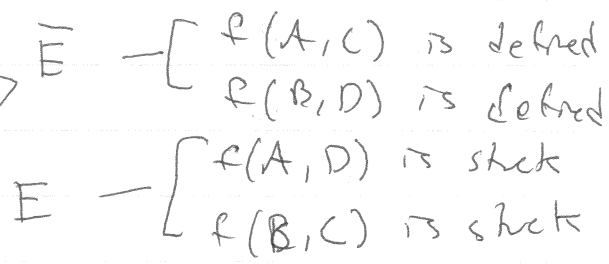 Ē — [ f(A,C) is defined
f(B,D) is defined
E — [ f(A,D) is stuck
f(B,C) is stuck